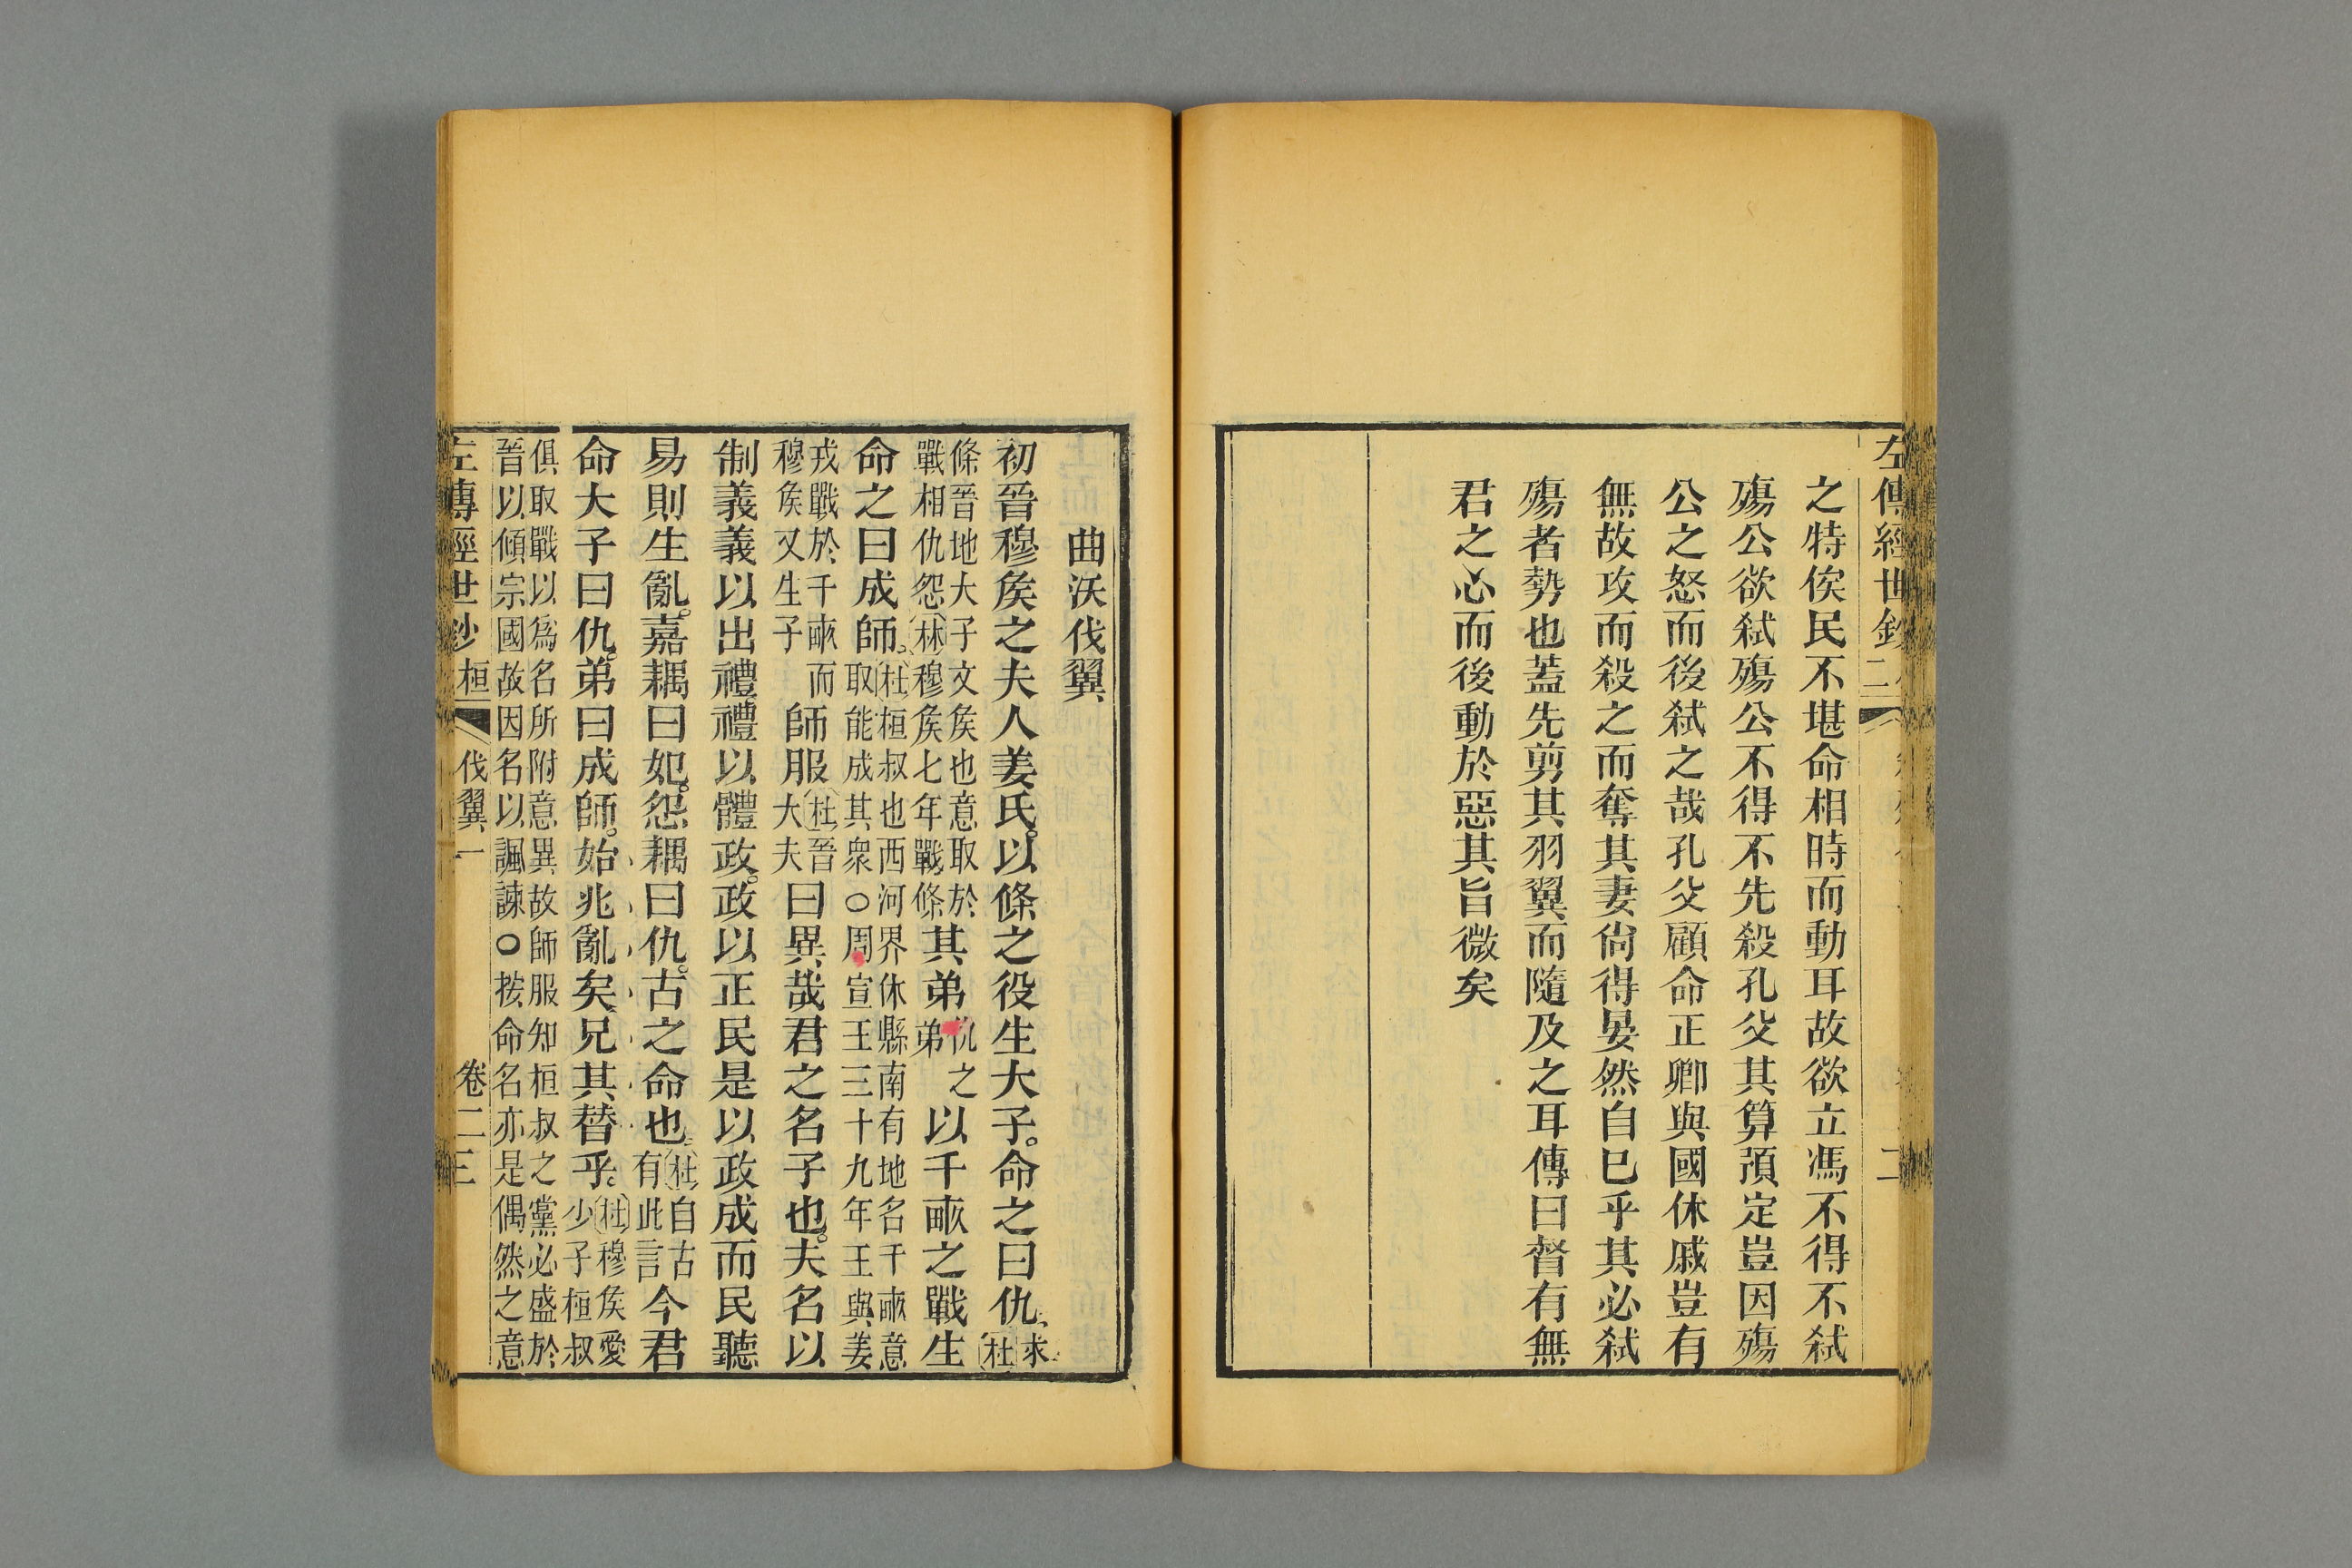 左傳經世鈔
二
之特俟民不堪命相時而動耳故欲立馮不得不弒
殤公欲弒殤公不得不先殺孔父其算預定豈因殤
公之怒而後弒之哉孔父顧命正卿與國休戚豈有
無故攻而殺之而奪其妻尙得晏然自已乎其必弒
殤者勢也蓋先剪其羽翼而隨及之耳傳曰督有無
君之心而後動於惡其旨微矣
曲沃伐翼
初晉穆矦之夫人姜氏以條之役生大子命之曰仇杜求
條晉地大子文矦也意取於
戰相仇怨林穆矦七年戰條其弟仇之弟以千畞之戰生
命之曰成師杜桓叔也西河界休縣南有地名千畞意
取能成其衆○周宣王三十九年王與姜
戎戰於千畞而
穆矦又生子師服杜晉大夫曰異哉君之名子也夫名以
制義義以出禮禮以體政政以正民是以政成而民聽
易則生亂嘉耦曰妃怨耦曰仇古之命也杜自古有此言今君
命大子曰仇弟曰成師始兆亂矣兄其替乎杜穆矦愛少子桓叔
俱取戰以爲名所附意異故師服知桓叔之黨必盛於
晉以傾宗國故因名以諷諫○按命名亦是偶然之意
左傳經世鈔 桓 伐翼一 卷二 三